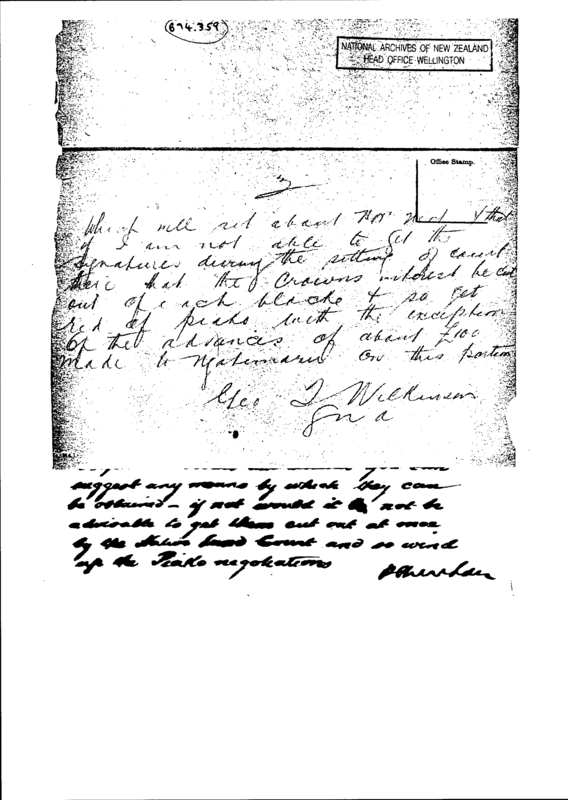 674.359
NATIONAL ARCHIVES OF NEW ZEALAND
HEAD OFFICE WELLINGTON
Office Stamp.
3
which will sit about Nov next & that
if I am not able to get the
signatures during the sitting of court
there that the Crowns interest be cut
out of each blocke & so get
red of piako with the exception
of the advances of about £100
made to Ngatimaru on this portion
Geo T Wilkinson
suggest any means by which they can
be obtained - if not would it not be
advisable to get them cut out at once
by the Native Land Court and so wind
up the Piako negotiations